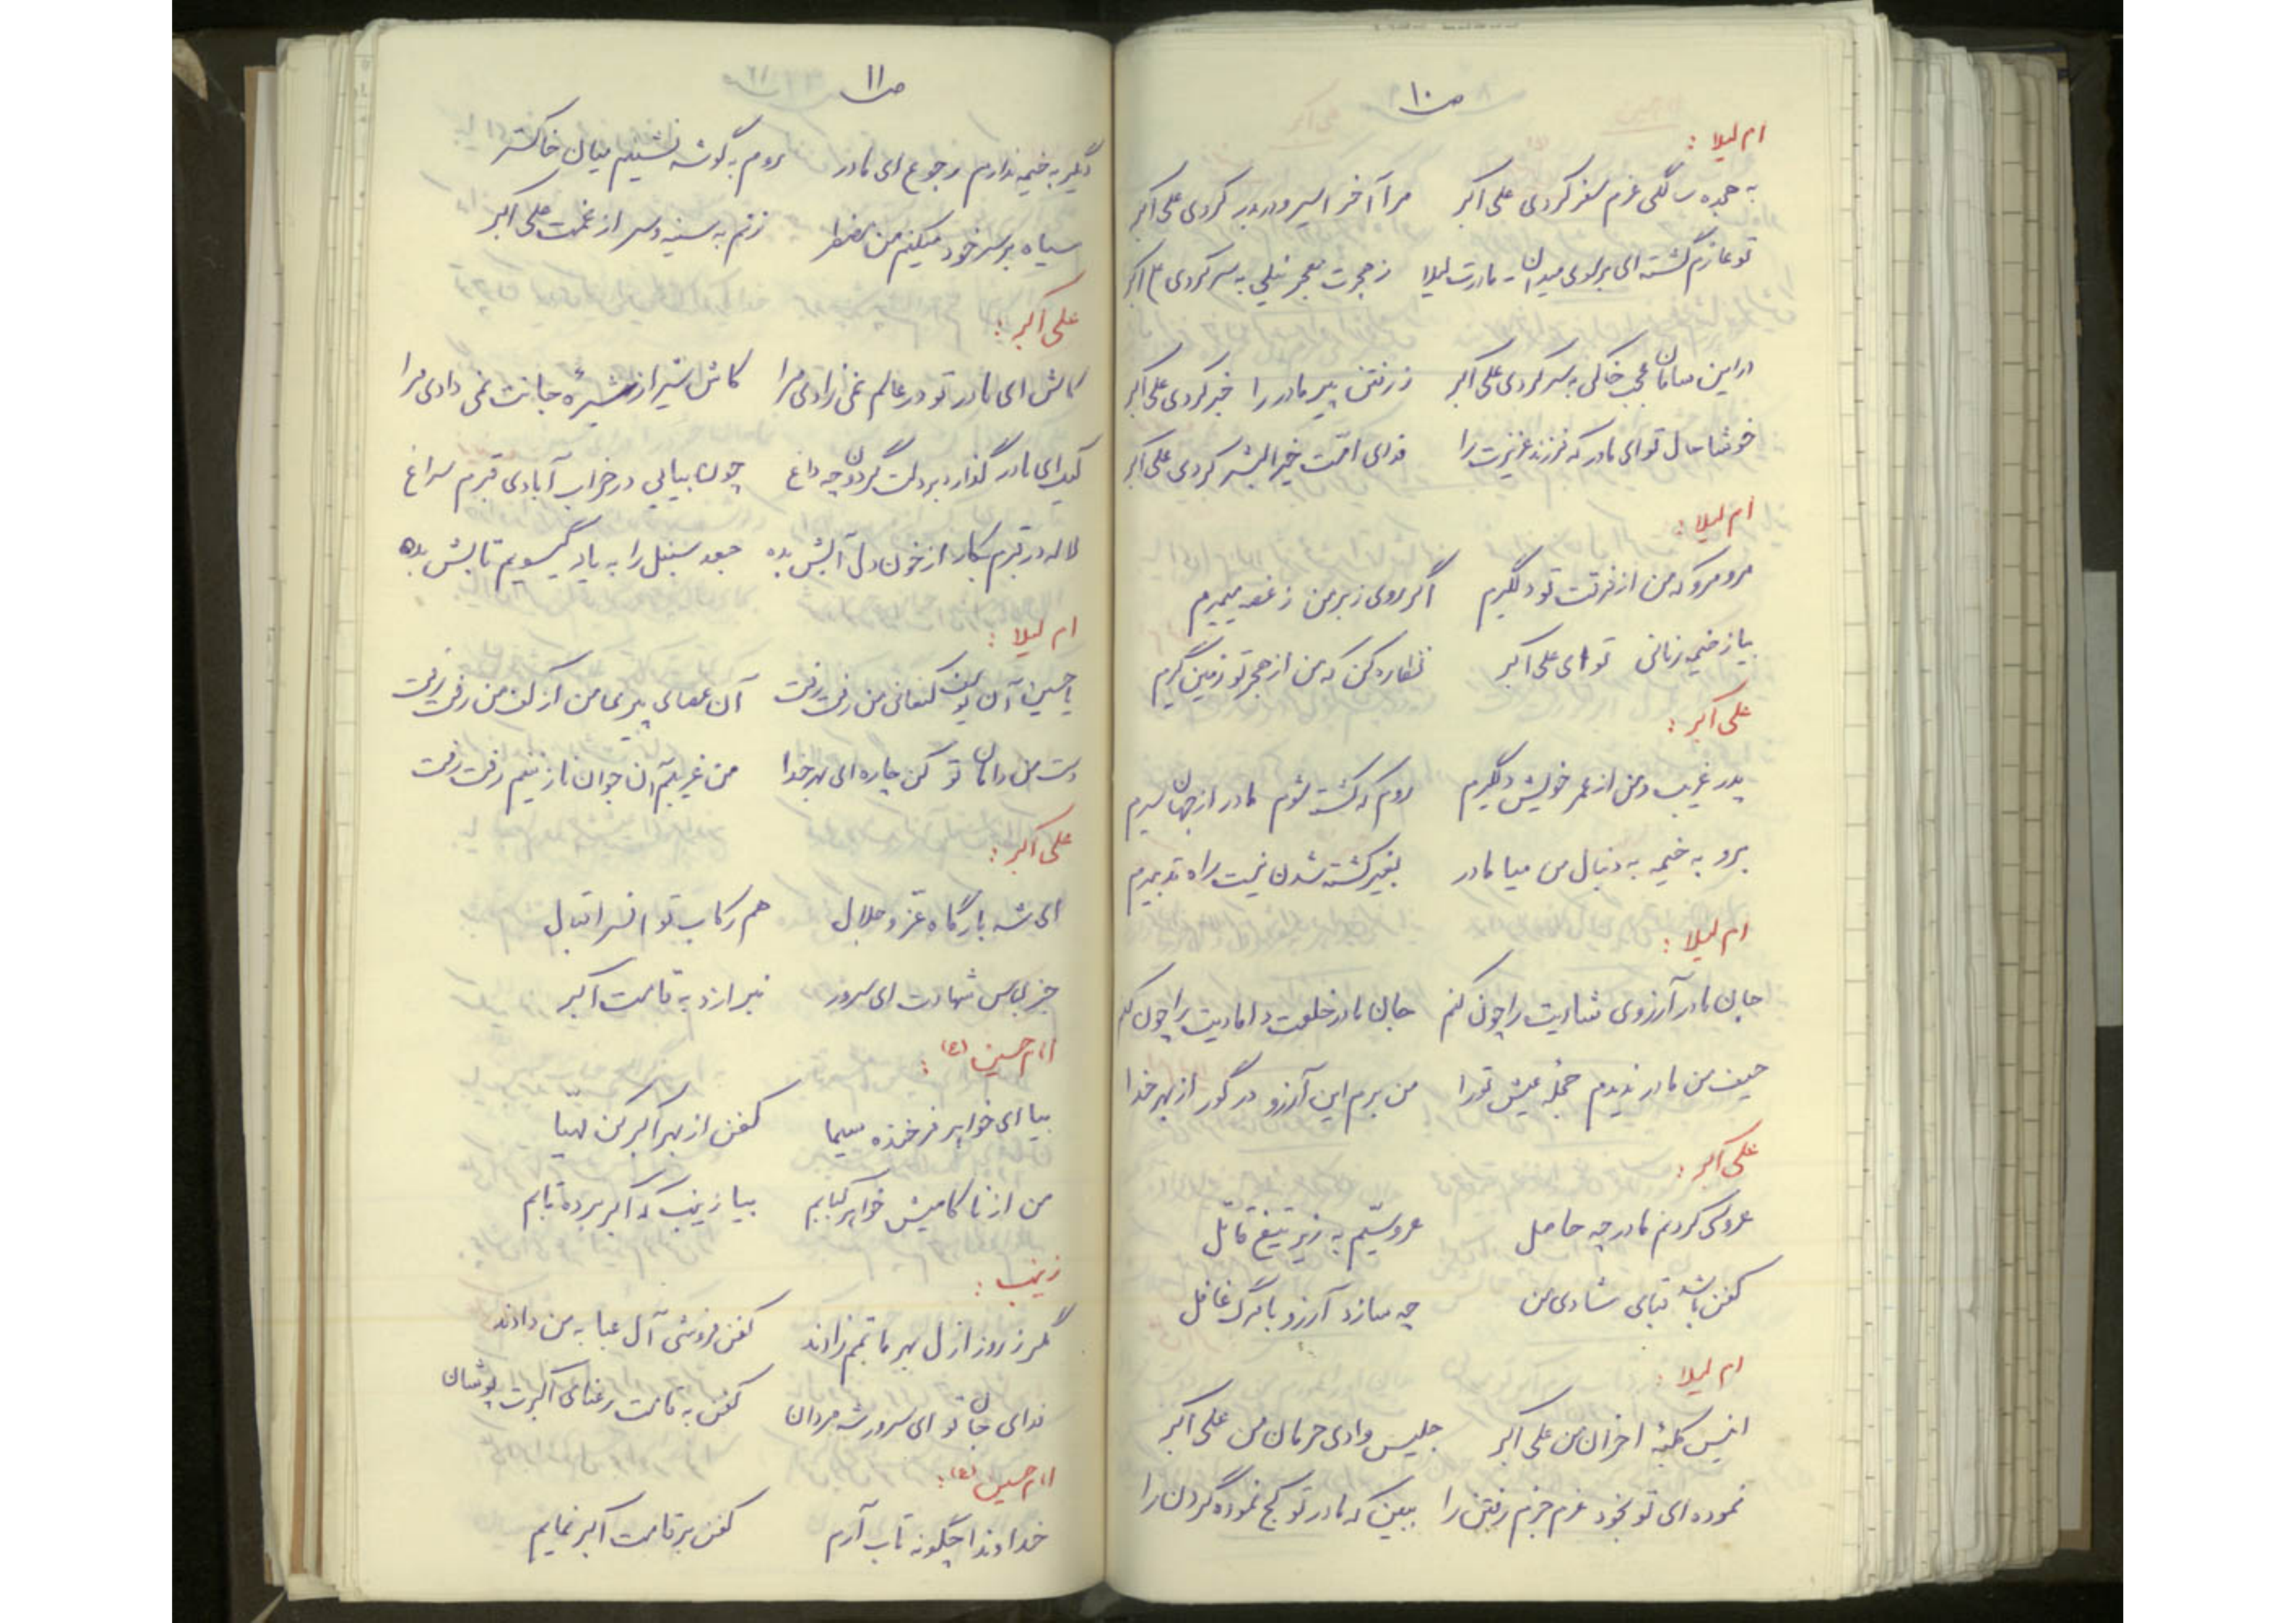 ص ۱۰
ام لیلا :
به هجده سالگی عزم سفر کردی علی اکبر مرا آخر اسیر و دربدر کردی علی اکبر
تو عازم گشته ای بر سوی میدان - مادرت لیلا ز هجرت معجر نیلی به سر کردی ع اکبر
در این سامان عجب خاکی به سر کردی علی اکبر ز رفتن پیر مادر را خبر کردی علی اکبر
خوشا حال تو ای مادر که فرزند عزیزت را فدای امّت خیر البشر کردی علی اکبر
ام لیلا :
مرو مرو که من از فرقت تو دلگیرم اگر روی ز بر من ز غصه میمیرم
بیا ز خیمه زمانی تو ای علی اکبر نظاره کن که من از هجر تو زمین گیرم
علی اکبر :
پدر غریب و من از عمر خویش دلگیرم روم که کشته شوم مادر از جهان سیرم
برو به خیمه به دنبال من میا مادر بغیر کشته شدن نیست راه تدبیرم
ام لیلا :
جان مادر آرزوی شادیت را چون کنم جان مادر خلعت دامادیت را چون کنم
حیف من مادر ندیدم حجلهٔ عیش تو را من برم این آرزو در گور از بهر خدا
علی اکبر :
عروسی کردنم مادر چه حاصل عروسیّم به زیر تیغ قاتل
کفن باشد قبای شادی من چه سازد آرزو با مرگ غافل
ام لیلا :
انیس کلبهٔ احزان من علی اکبر جلیس وادی حرمان من علی اکبر
نموده ای تو بخود عزم جزم رفتن را ببین که مادر تو کج نموده گردن را
ص ۱۱
دیگر به خیمه ندارم رجوع ای مادر روم به گوشه نشینم میان خاکستر
سیاه بر سر خود میکنم من مضطر زنم به سینه و سر از غمت علی اکبر
علی اکبر :
کاش ای مادر تو در عالم نمی زادی مرا کاش شیر از شیرهٔ جانت نمی دادی مرا
آید ای مادر گذارد بر دلت گردون چه داغ چون بیایی در خراب آبادی قبرم سراغ
لاله در قبرم بکار از خون دل آبش بده جعد سنبل را به یاد گیسویم تابش بده
ام لیلا :
یا حسین آن یوسف کنعانی من رفت رفت آن عصای پیری من از کف من رفت رفت
دست من دامان تو کن چاره ای بهر خدا من غریبم آن جوان نازنینم رفت رفت
علی اکبر :
ای شه بارگاه عزّ و جلال هم رکاب تو افسر اقبال
جز لباس شهادت ای سرور نبرازد به قامت اکبر
امام حسین (ع) :
بیا ای خواهر فرخنده سیما کفن از بهر اکبر کن مهیّا
من از ناکامیش خواهر کبابم بیا زینب که اکبر برده تابم
زینب :
مگر ز روز ازل بهر ماتمم زادند کفن فروشی آل عبا به من دادند
فدای جان تو ای سرور شه مردان کفن به قامت رعنای اکبرت پوشان
امام حسین (ع) :
خداوندا چگونه تاب آرم کفن بر قامت اکبر نمایم